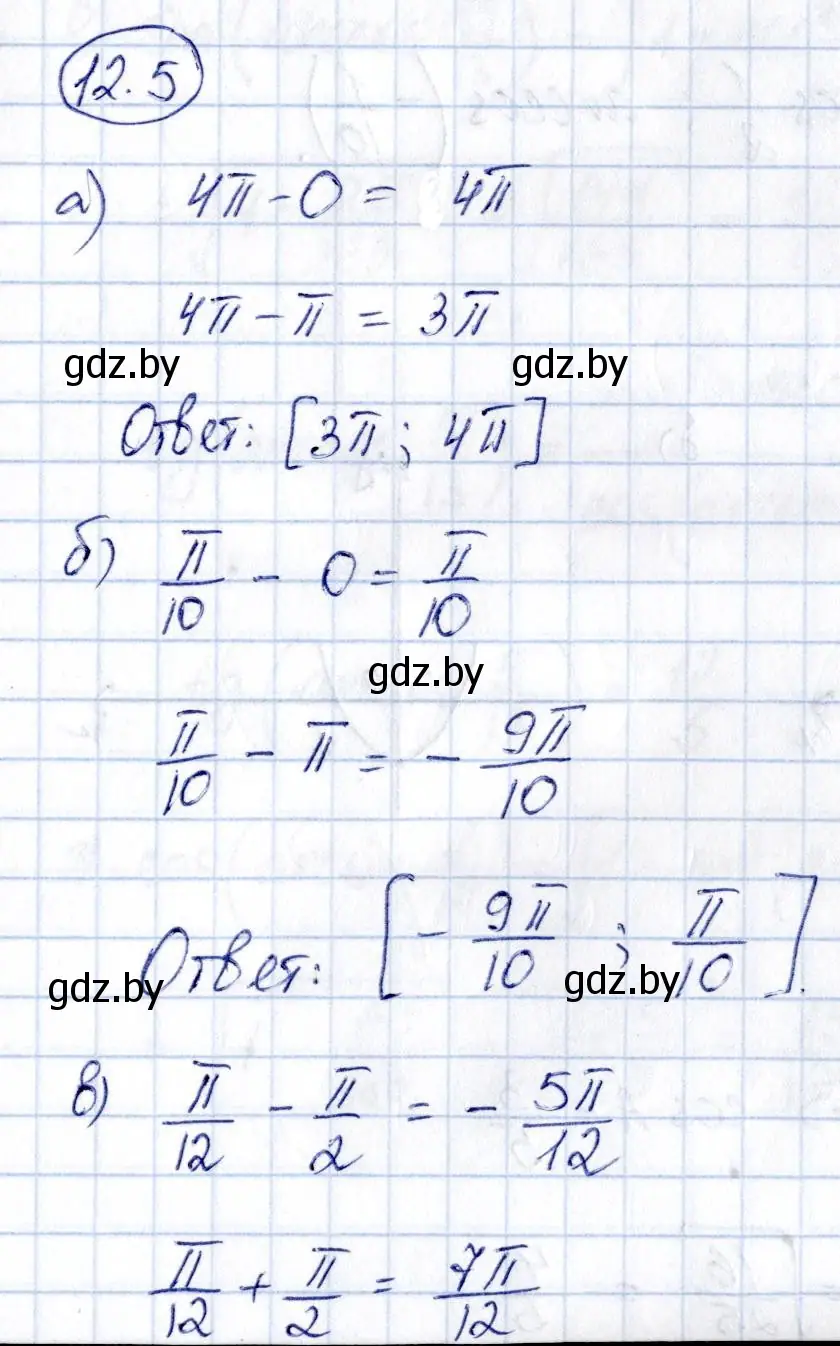 12.5
а) 4π - 0 = 4π
4π - π = 3π
gdz.by gdz.by
Ответ: [3π; 4π]
б) π/10 - 0 = π/10
gdz.by
π/10 - π = - 9π/10
Ответ: [- 9π/10 ; π/10].
gdz.by gdz.by
в) π/12 - π/2 = - 5π/12
π/12 + π/2 = 7π/12